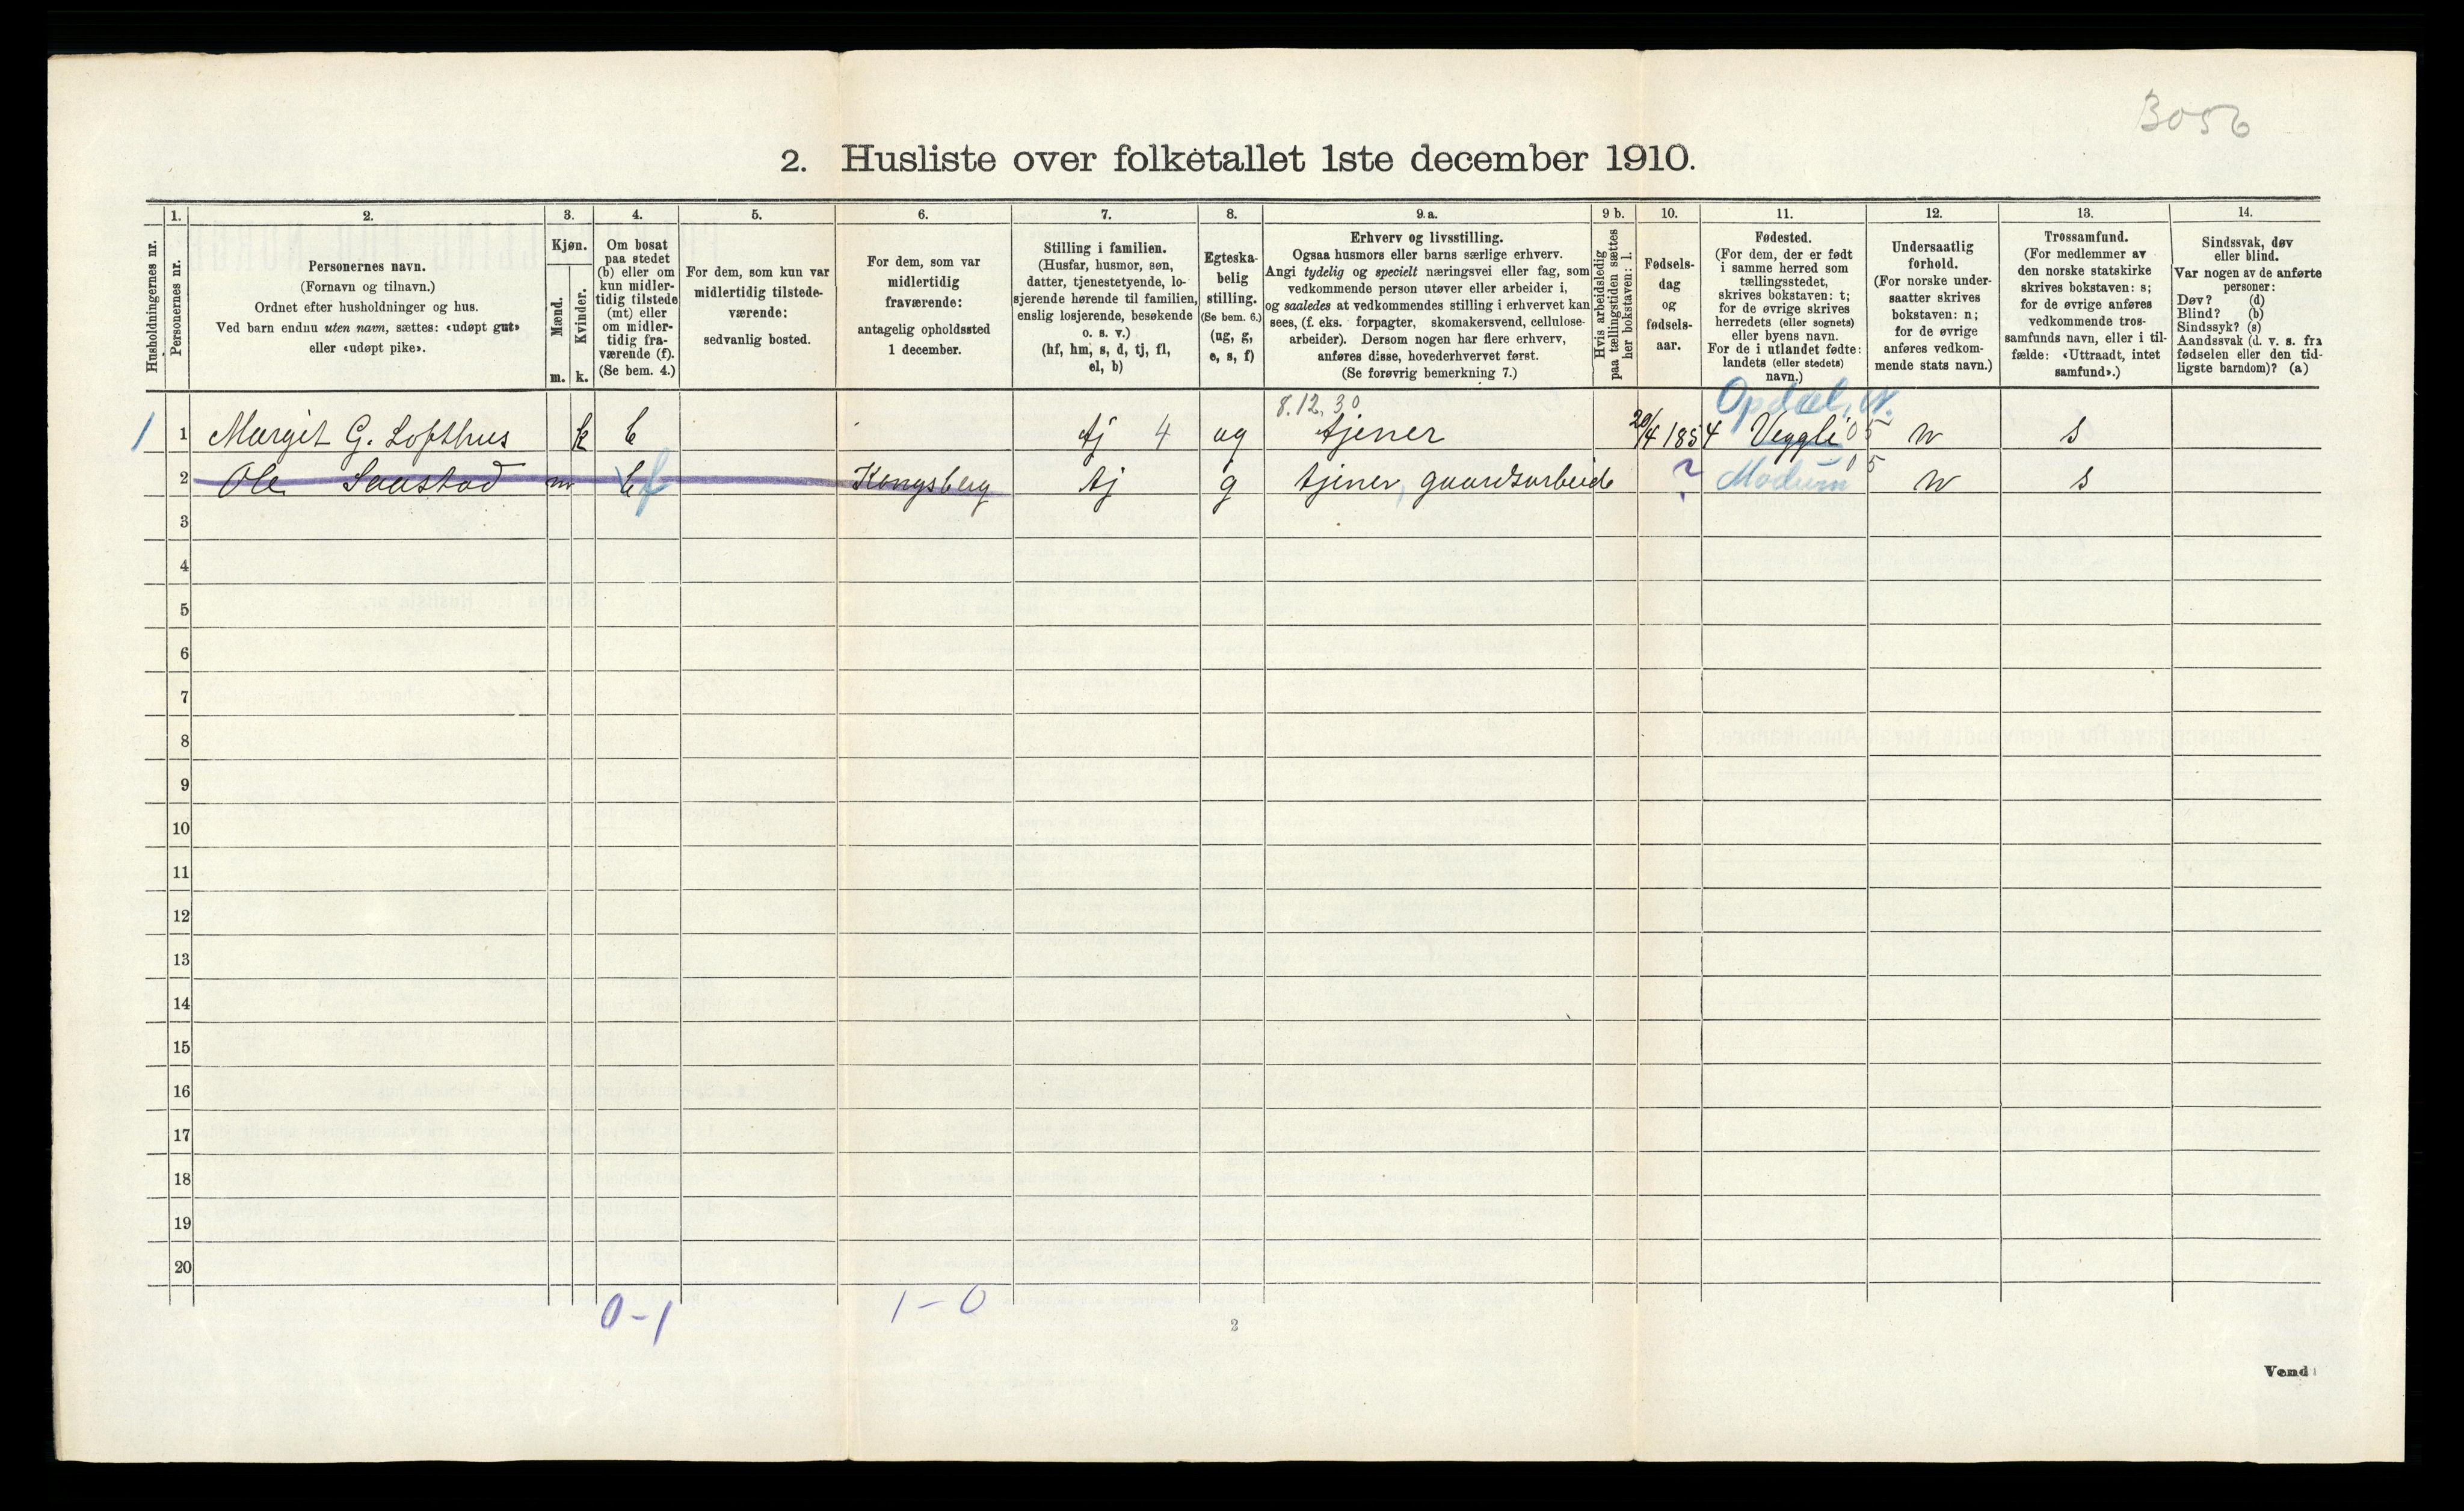 3056
2. Husliste over folketallet 1ste december 1910.
Husholdningernes nr.
1.
Personernes nr.
2.
Personernes navn.
(Fornavn og tilnavn.)
Ordnet efter husholdninger og hus.
Ved barn endnu uten navn, sættes: «udøpt gut»
eller «udøpt pike».
3.
Kjøn.
Mænd.
m.
Kvinder.
k.
4.
Om bosat
paa stedet
(b) eller om
kun midler-
tidig tilstede
(mt) eller
om midler-
tidig fra-
værende (f).
(Se bem. 4.)
5.
For dem, som kun var
midlertidig tilstede-
værende:
sedvanlig bosted.
6.
For dem, som var
midlertidig
fraværende:
antagelig opholdssted
1 december.
7.
Stilling i familien.
(Husfar, husmor, søn,
datter, tjenestetyende, lo-
sjerende hørende til familien,
enslig losjerende, besøkende
o. s. v.)
(hf, hm, s, d, tj, fl,
el, b)
8.
Egteska-
belig
stilling.
(Se bem. 6.)
(ug, g,
e, s, f)
9. a.
Erhverv og livsstilling.
Ogsaa husmors eller barns særlige erhverv.
Angi tydelig og specielt næringsvei eller fag, som
vedkommende person utøver eller arbeider i,
og saaledes at vedkommendes stilling i erhvervet kan
sees, (f. eks. forpagter, skomakersvend, cellulose-
arbeider). Dersom nogen har flere erhverv,
anføres disse, hovederhvervet først.
(Se forøvrig bemerkning 7.)
9 b.
Hvis arbeidsledig
paa tællingstiden sættes
her bokstaven: l.
10.
Fødsels-
dag
og
fødsels-
aar.
11.
Fødested.
(For dem, der er født
i samme herred som
tællingsstedet,
skrives bokstaven: t;
for de øvrige skrives
herredets (eller sognets)
eller byens navn.
For de i utlandet fødte:
landets (eller stedets)
navn.)
12.
Undersaatlig
forhold.
(For norske under-
saatter skrives
bokstaven: n;
for de øvrige
anføres vedkom-
mende stats navn.)
13.
Trossamfund.
(For medlemmer av
den norske statskirke
skrives bokstaven: s;
for de øvrige anføres
vedkommende tros-
samfunds navn, eller i til-
fælde: «Uttraadt, intet
samfund».)
14.
Sindssvak, døv
eller blind.
Var nogen av de anførte
personer:
Døv? (d)
Blind? (b)
Sindssyk? (s)
Aandssvak (d. v. s. fra
fødselen eller den tid-
ligste barndom)? (a)
8.12.30 Opdal, N.
1 1 Margit G. Lofthus k b tj 4 ug tjener 20/4 1854 Veggli 05 n s
2 Ole m b f Kongsberg tj g tjener, gaardsarbeide ? Modum 05 n s
3
4
5
6
7
8
9
10
11
12
13
14
15
16
17
18
19
20
0-1 1-0
2
Vend